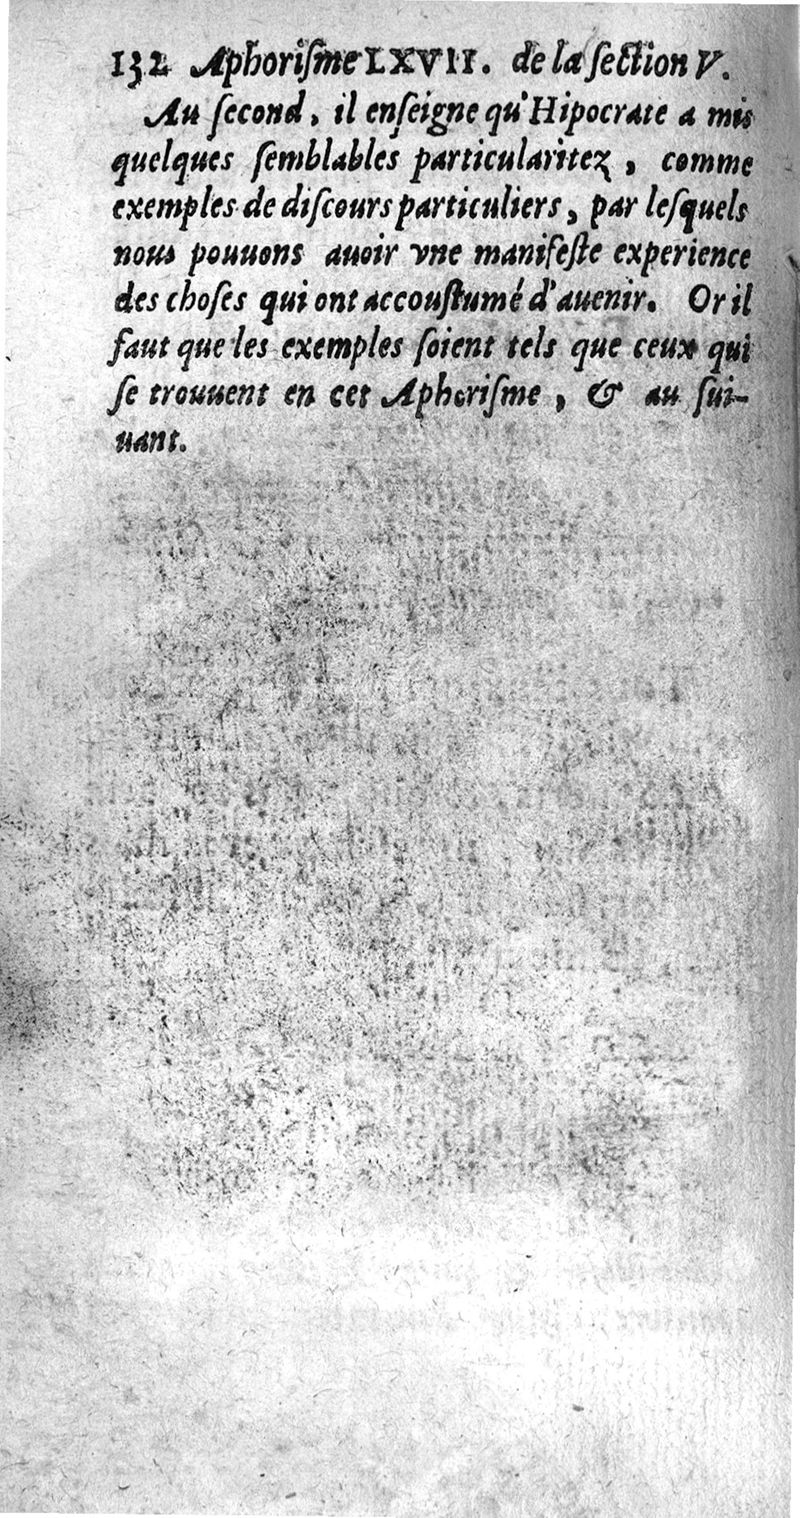 132 Aphoriſme LXVII. de la ſection V.
Au ſecond, il enſeigne qu'Hipocrate a mis
quelques ſemblables particularitez, comme
exemples de diſcours particuliers, par leſquels
nous pouuons auoir vne manifeſte experience
des choſes qui ont accouſtumé d'auenir. Or il
faut que les exemples ſoient tels que ceux qui
ſe trouuent en cet Aphoriſme, & au ſui-
uant.